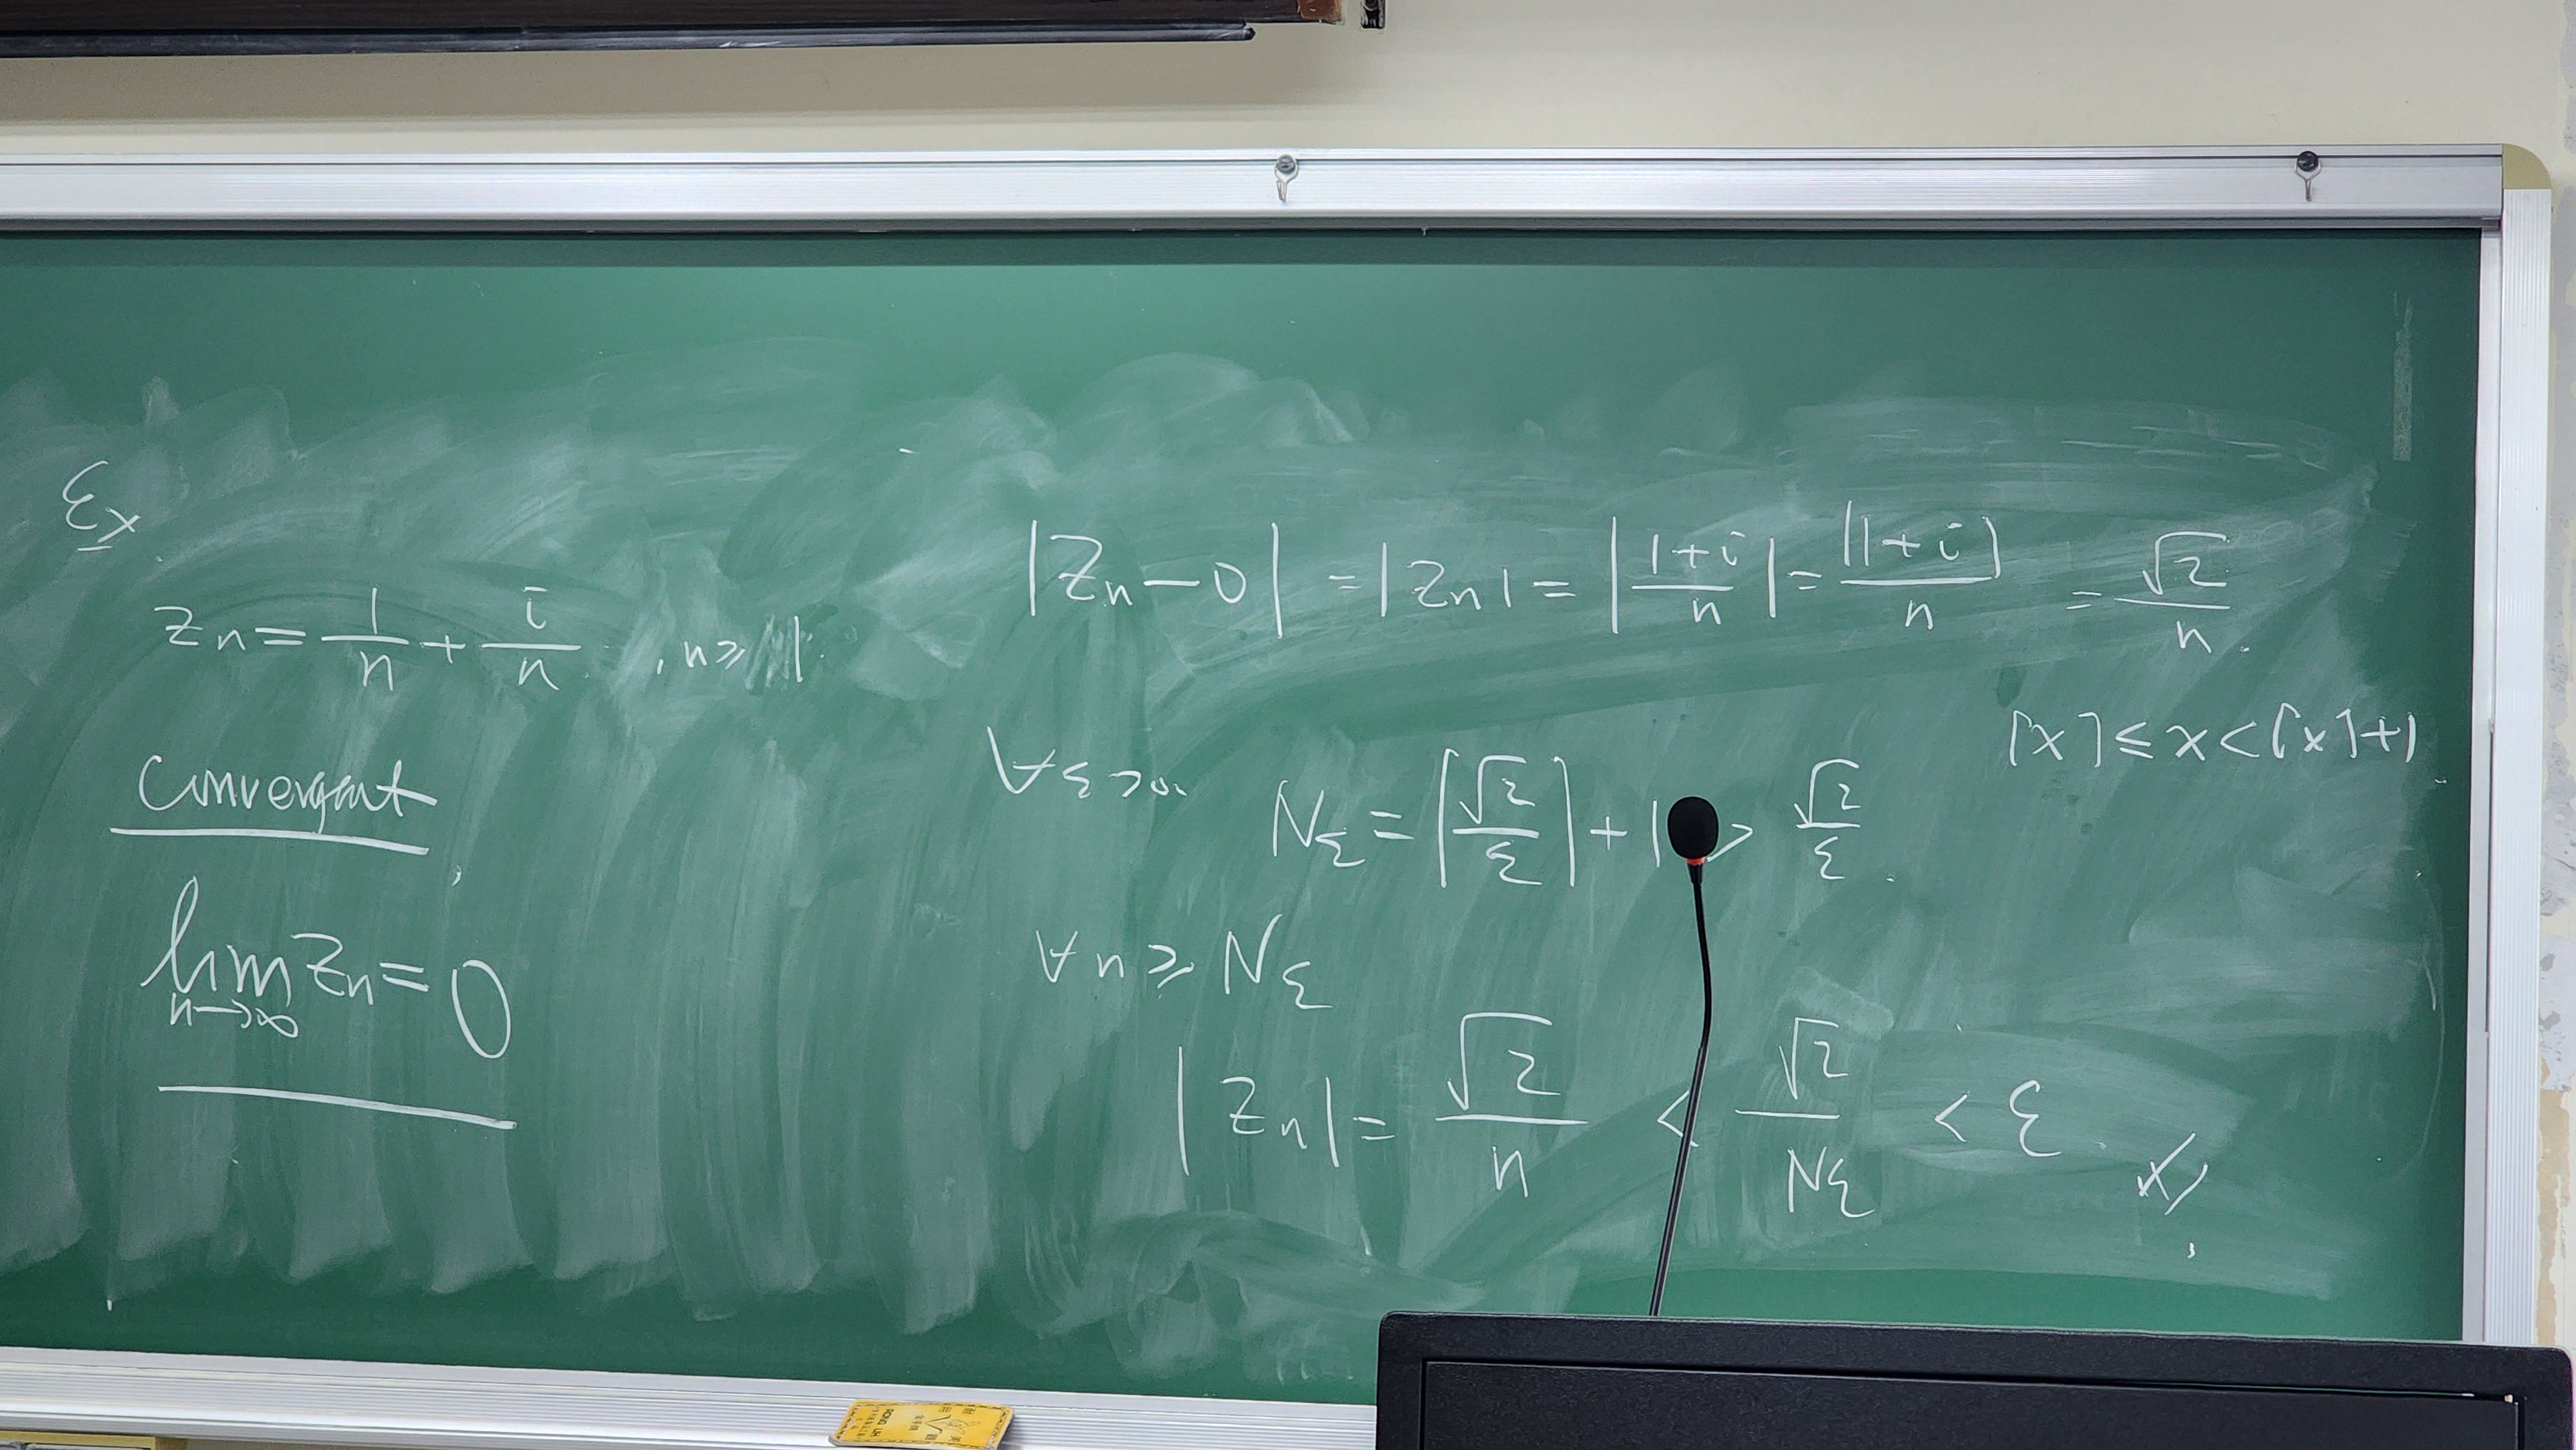 Ex
Zn = 1/n + i/n , n ≥ 1.
convergent
lim n→∞ Zn = 0
|Zn - 0| = |Zn| = |(1+i)/n| = |1+i|/n = √2/n.
[x] ≤ x < [x]+1
∀ε>0.
Nε = [√2/ε] + 1 > √2/ε.
∀n ≥ Nε
|Zn| = √2/n < √2/Nε < ε.